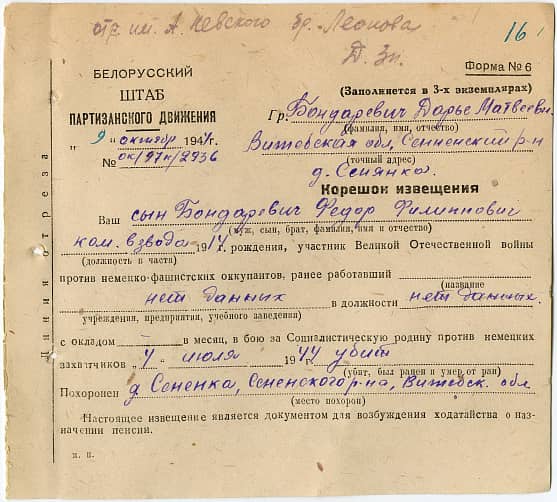 отр. им. А. Невского бр. Леонова
16
Д. Зп.
Форма № 6
БЕЛОРУССКИЙ
ШТАБ
ПАРТИЗАНСКОГО ДВИЖЕНИЯ
„9 „ октябр 1944г.
№ ок/97н/2936
(Заполняется в 3-х экземплярах)
Гр. Бондаревич Дарье Матвеевн.
(фамилия, имя, отчество)
Витебская обл, Сенненский р-н
(точный адрес)
д. Сенянка.
Корешок извещения
Линия отреза
Ваш сын Бондаревич Федор Филиппович
(муж, сын, брат, фамилия, имя и отчество)
ком. взвода 1914г. рождения, участник Великой Отечественной войны
(должность в части)
против немецко-фашистских оккупантов, ранее работавший
(название
нет данных в должности нет данных.
учреждения, предприятия, учебного заведения)
с окладом в месяц, в бою за Социалистическую родину против немецких
захватчиков „ 4 „ июля 1944 г. убит
(убит, был ранен и умер от ран)
Похоронен д. Сененка, Сененского р-на, Витебск. обл
(место похорон)
Настоящее извещение является документом для возбуждения ходатайства о на-
значении пенсии.
м. п.